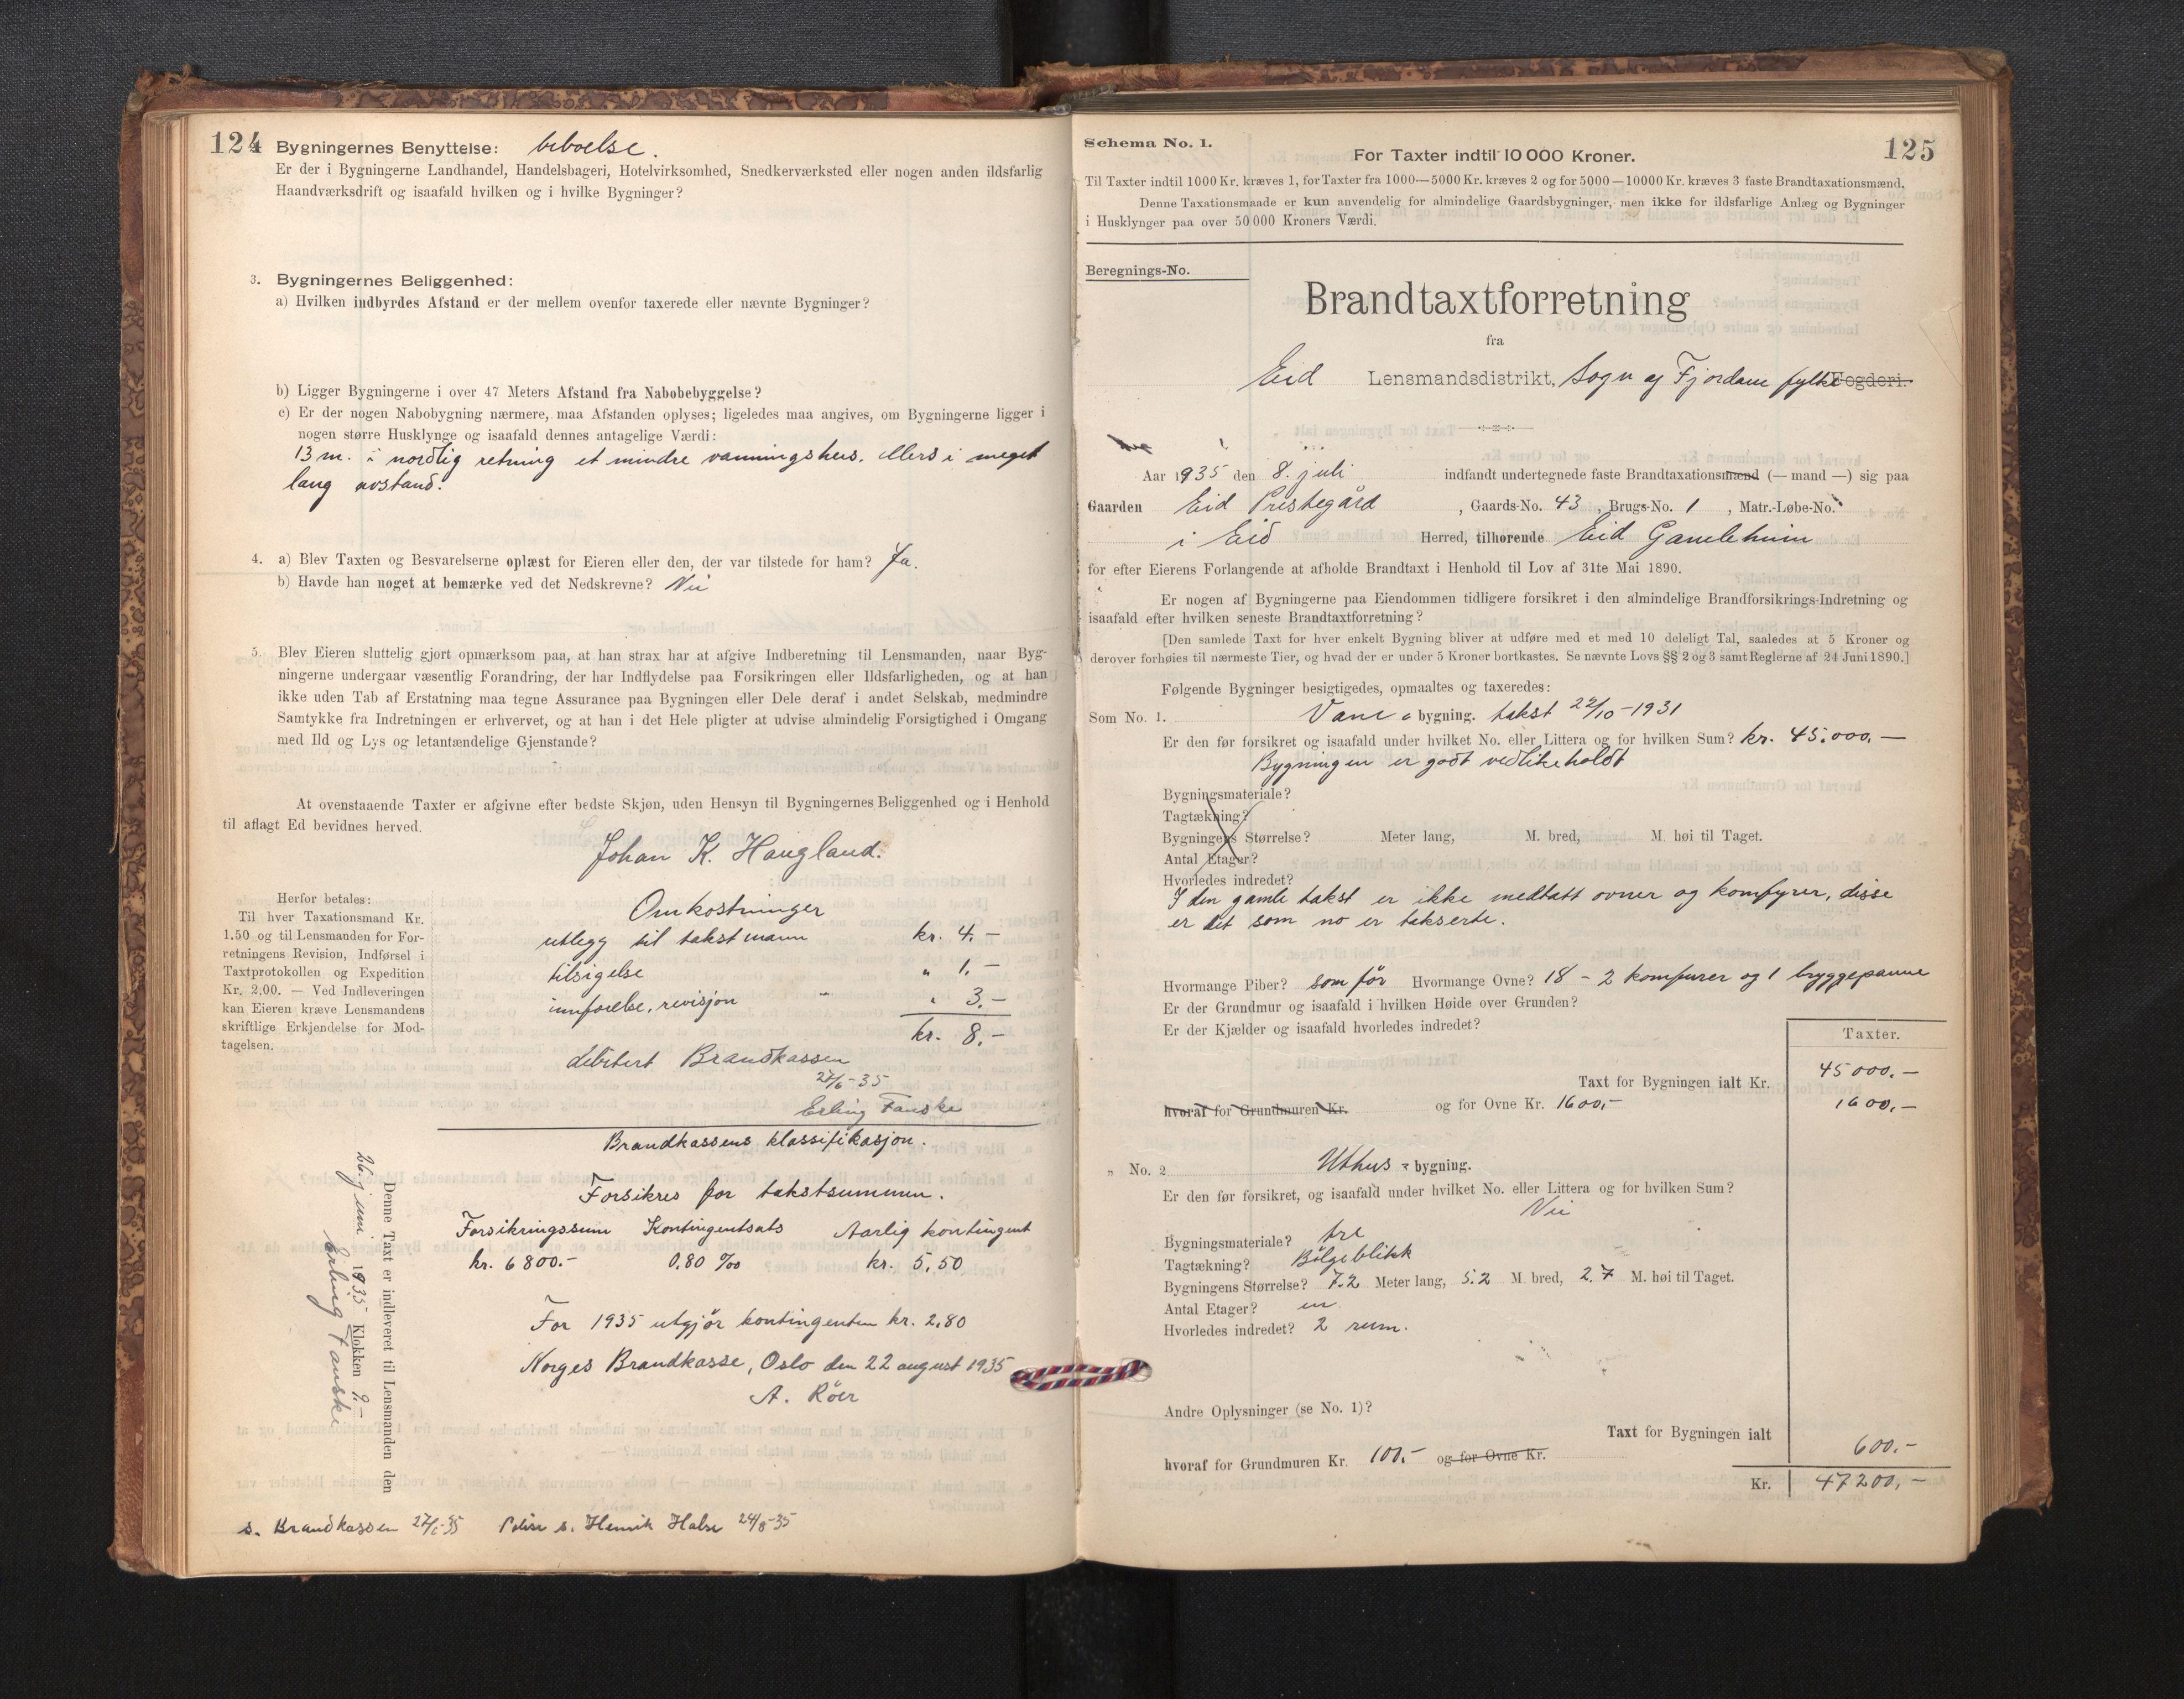 124
Bygningernes Benyttelse: beboelse.
Er der i Bygningerne Landhandel, Handelsbageri, Hotelvirksomhed, Snedkerværksted eller nogen anden ildsfarlig
Haandværksdrift og isaafald hvilken og i hvilke Bygninger?
3. Bygningernes Beliggenhed:
a) Hvilken indbyrdes Afstand er der mellem ovenfor taxerede eller nævnte Bygninger?
b) Ligger Bygningerne i over 47 Meters Afstand fra Nabobebyggelse?
c) Er der nogen Nabobygning nærmere, maa Afstanden oplyses; ligeledes maa angives, om Bygningerne ligger i
nogen større Husklynge og isaafald dennes antagelige Værdi:
13 m. i nordlig retning et mindre vaaningshus. Ellers i meget
lang avstand.
4. a) Blev Taxten og Besvarelserne oplæst for Eieren eller den, der var tilstede for ham? Ja.
b) Havde han noget at bemærke ved det Nedskrevne? Nei
5. Blev Eieren sluttelig gjort opmærksom paa, at han strax har at afgive Indberetning til Lensmanden, naar Byg-
ningerne undergaar væsentlig Forandring, der har Indflydelse paa Forsikringen eller Ildsfarligheden, og at han
ikke uden Tab af Erstatning maa tegne Assurance paa Bygningen eller Dele deraf i andet Selskab, medmindre
Samtykke fra Indretningen er erhvervet, og at han i det Hele pligter at udvise almindelig Forsigtighed i Omgang
med Ild og Lys og letantændelige Gjenstande?
At ovenstaaende Taxter er afgivne efter bedste Skjøn, uden Hensyn til Bygningernes Beliggenhed og i Henhold
til aflagt Ed bevidnes herved.
Johan K. Haugland.
Herfor betales:
Til hver Taxationsmand Kr.
1.50 og til Lensmanden for For-
retningens Revision, Indførsel i
Taxtprotokollen og Expedition
Kr. 2,00. — Ved Indleveringen
kan Eieren kræve Lensmandens
skriftlige Erkjendelse for Mod-
tagelsen.
Omkostninger
utlegg til takstmann kr. 4.-
tilsigelse " 1.-
innførelse, revisjon " " 3.-
kr. 8.-
debitert Brandkassen
27/6-35
Erling Fauske
Brandkassens klassifikasjon.
Forsikres for takstsummen.
Forsikringssum Kontingentsats Aarlig kontingent
kr. 6800.- 0,80 ‰ kr. 5,50
For 1935 utgjør kontingenten kr. 2,80
Norges Brandkasse, Oslo den 22 august 1935
A. Röer
Denne Taxt er indleveret til Lensmanden den
26. juni 1935 Klokken 9.-
Erling Fauske
s. Brandkassen 27/6-35 Polise s. Henrik Halse 24/8-35
Schema No. 1.
For Taxter indtil 10 000 Kroner.
125
Til Taxter indtil 1000 Kr. kræves 1, for Taxter fra 1000—5000 Kr. kræves 2 og for 5000—10000 Kr. kræves 3 faste Brandtaxationsmænd.
Denne Taxationsmaade er kun anvendelig for almindelige Gaardsbygninger, men ikke for ildsfarlige Anlæg og Bygninger
i Husklynger paa over 50 000 Kroners Værdi.
Beregnings-No.
Brandtaxtforretning
fra
Eid Lensmandsdistrikt, Sogn og Fjordane fylke Fogderi.
Aar 1935 den 8. juli indfandt undertegnede faste Brandtaxationsmænd (— mand —) sig paa
Gaarden Eid Prestegård , Gaards-No. 43 , Brugs-No. 1 , Matr.-Løbe-No.
i Eid Herred, tilhørende Eid Gamleheim
for efter Eierens Forlangende at afholde Brandtaxt i Henhold til Lov af 31te Mai 1890.
Er nogen af Bygningerne paa Eiendommen tidligere forsikret i den almindelige Brandforsikrings-Indretning og
isaafald efter hvilken seneste Brandtaxtforretning?
[Den samlede Taxt for hver enkelt Bygning bliver at udføre med et med 10 deleligt Tal, saaledes at 5 Kroner og
derover forhøies til nærmeste Tier, og hvad der er under 5 Kroner bortkastes. Se nævnte Lovs §§ 2 og 3 samt Reglerne af 24 Juni 1890.]
Følgende Bygninger besigtigedes, opmaaltes og taxeredes:
Som No. 1. Vane bygning. takst 22/10-1931
Er den før forsikret og isaafald under hvilket No. eller Littera og for hvilken Sum? kr. 45.000.—
Bygningen er godt vedlikeholdt
Bygningsmateriale?
Tagtækning?
Bygningens Størrelse? Meter lang, M. bred, M. høi til Taget.
Antal Etager?
Hvorledes indredet?
I den gamle takst er ikke medtatt ovner og komfyrer, disse
er det som no er takserte.
Hvormange Piber? som för Hvormange Ovne? 18 - 2 komfyrer og 1 bryggepanne
Er der Grundmur og isaafald i hvilken Høide over Grunden?
Er der Kjælder og isaafald hvorledes indredet?
Taxter.
Taxt for Bygningen ialt Kr. 45000.-
hvoraf for Grundmuren Kr. og for Ovne Kr. 1600,- 1600.-
" No. 2 Uthus bygning.
Er den før forsikret, og isaafald under hvilket No. eller Littera og for hvilken Sum?
Nei
Bygningsmateriale? tre
Tagtækning? Bölgeblikk
Bygningens Størrelse? 7.2 Meter lang, 5.2 M. bred, 2.7 M. høi til Taget.
Antal Etager? en
Hvorledes indredet? 2 rum.
Andre Oplysninger (se No. 1)?
Taxt for Bygningen ialt 600.-
hvoraf for Grundmuren Kr. 100.- og for Ovne Kr.
Kr. 47200,-